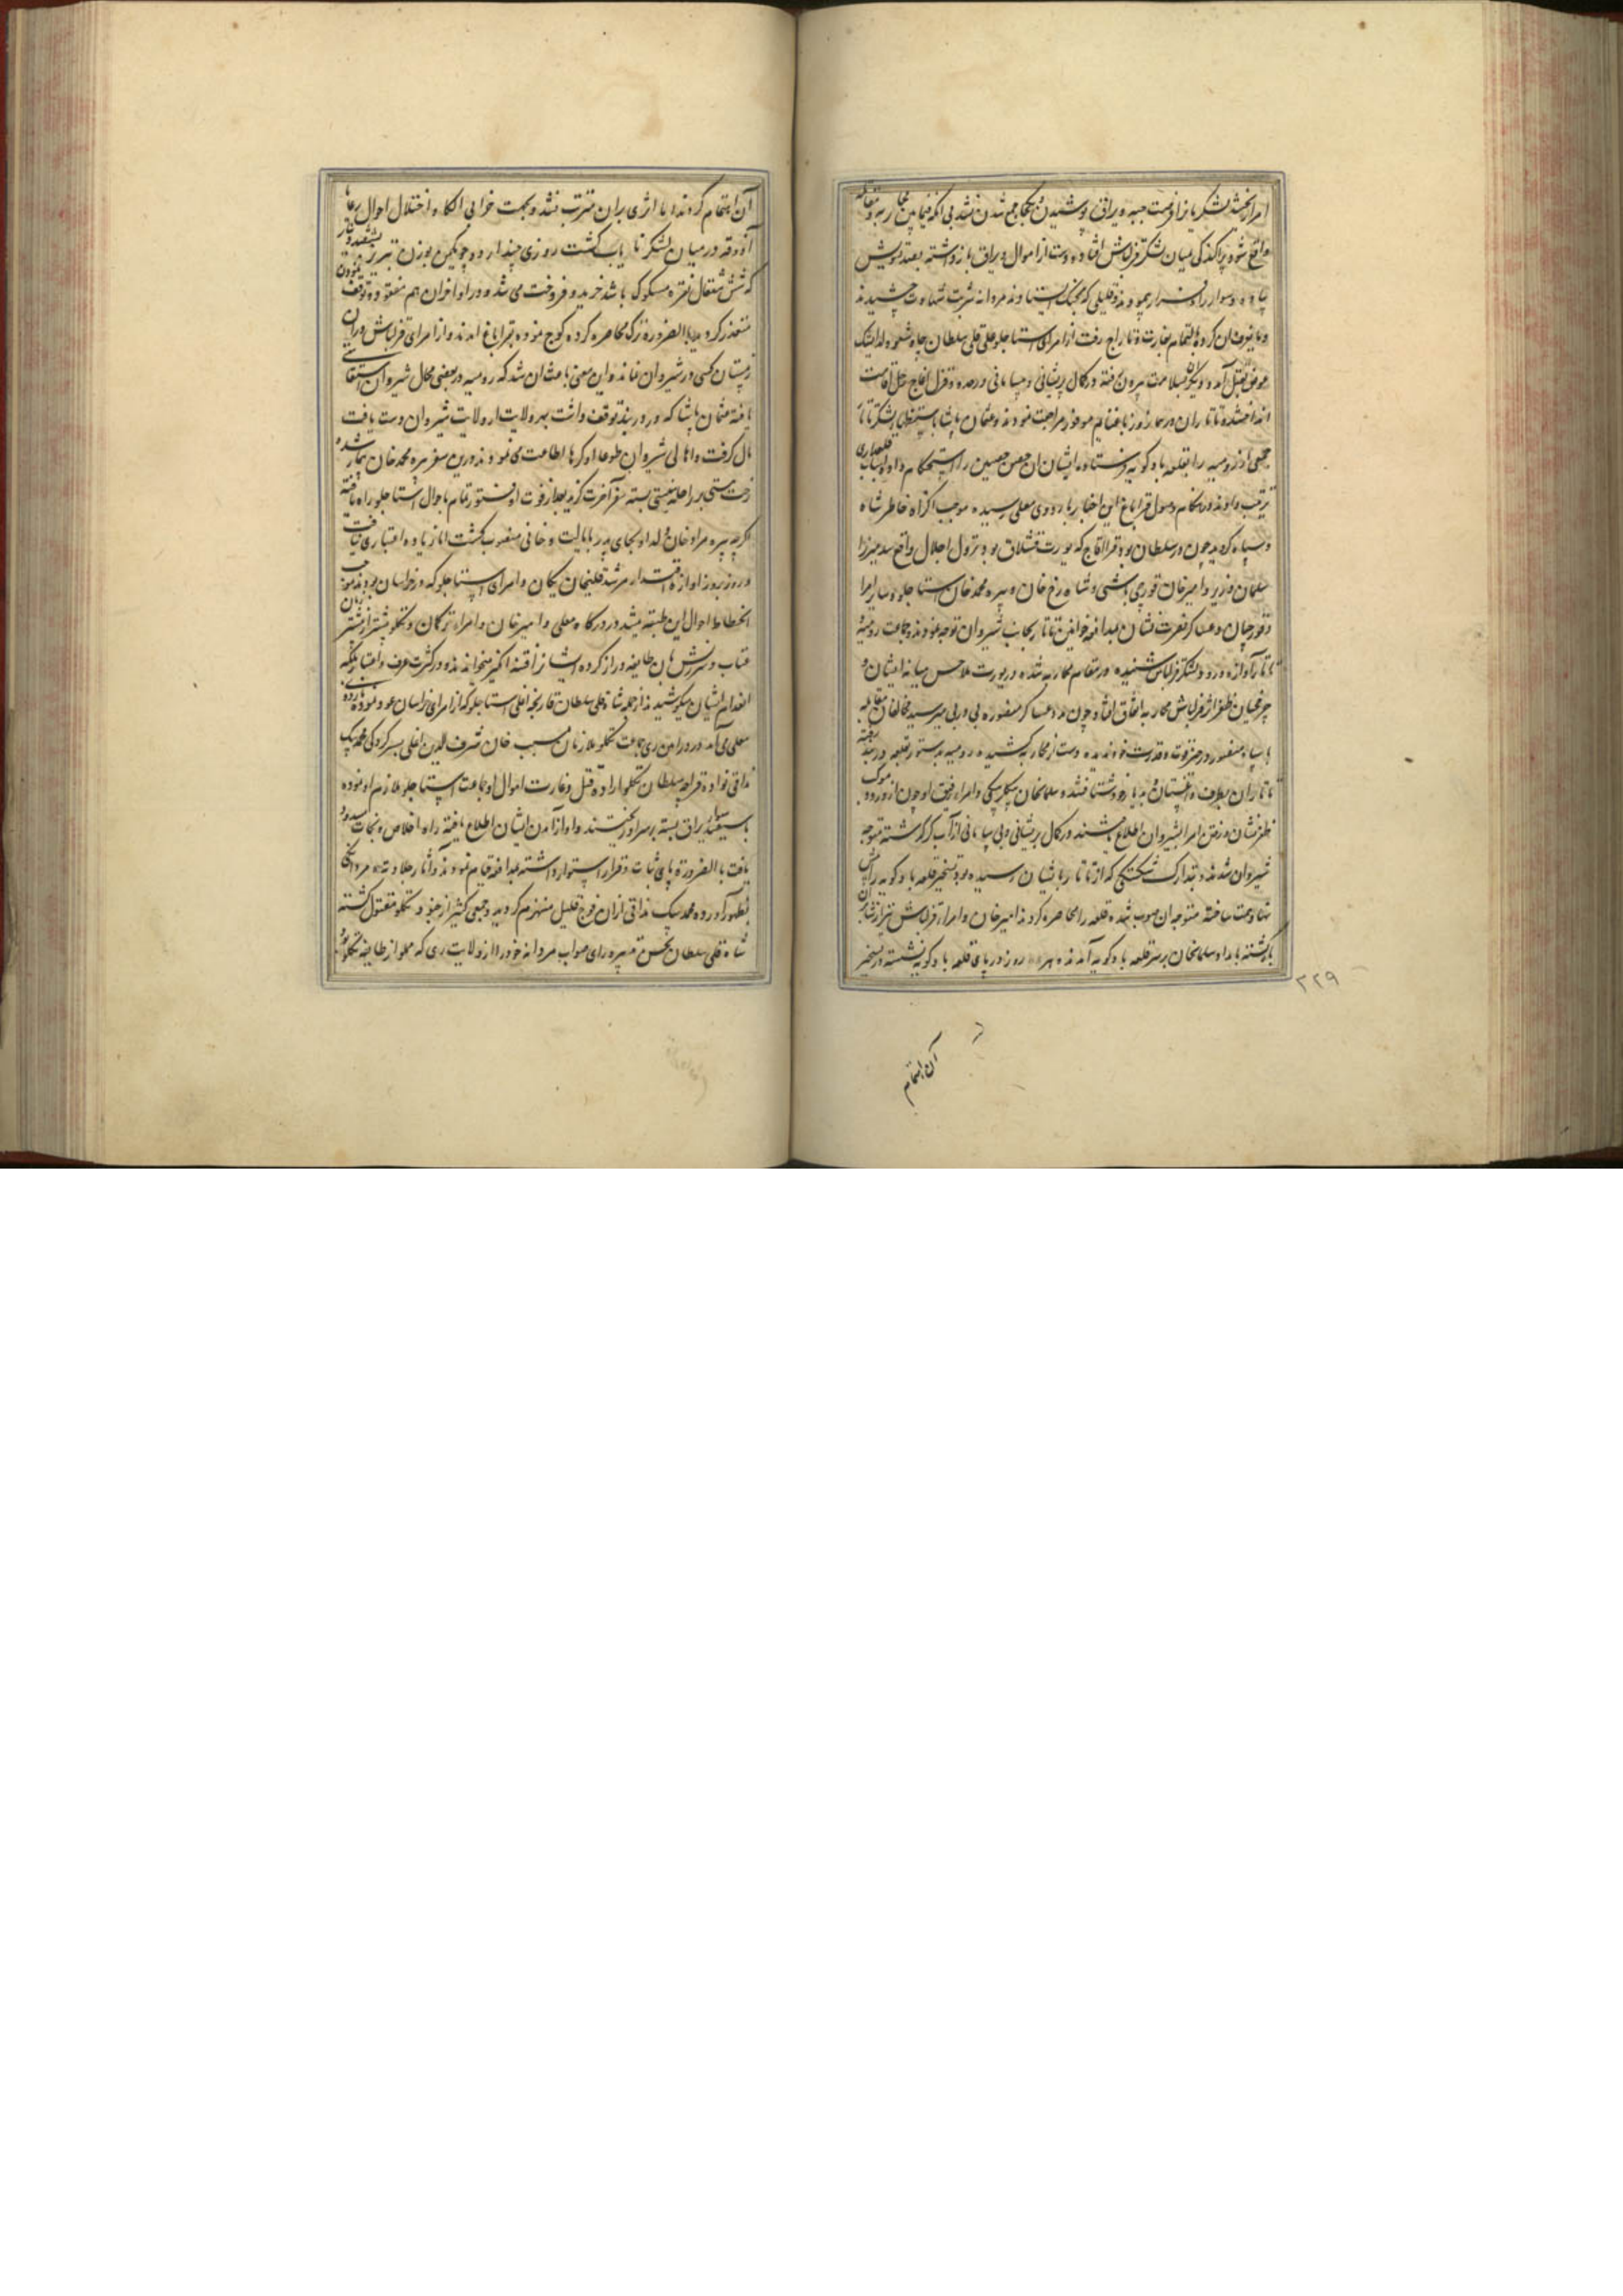 واقع شود پراکندگی بمیان لشکر قزلباش افتاده دست از اموال و یراق باز داشته بقید خویش
پیاده و سوار راه فرار پیمودند و قلیلی که بجنگ ایستادند مردانه شربت شهادت چشیدند
بغارت و تاراج رفت از امرای استاجلو علی قلی سلطان
بقتل آمد و دیگران بسلامت بیرون رفته در کمال پریشانی و بیسامانی در حدود قزل اقاج رحل اقامت
انداختند تاتاران در همان روز با غنایم موفور مراجعت نمودند و عثمان پاشا باستظهار لشکر تاتار
جمعی از رومیه را بقلعه بادکوبه فرستاد و ایشان آن حصن حصین را استحکام داده اسباب قلعه‌داری
ترتیب دادند در هنگام وصول قراباغ این اخبار باردوی معلی رسیده موجب اکراه خاطر شاه
و سپاه گردید چون در سلطان بود قرا اقاج که یورت قشلاق بود نزول اجلال واقع شد میرزا
سلمان وزیر و امیرخان قورچی باشی و شاهرخ خان و پیره محمدخان استاجلو و سایر امرا
و قورچیان و عساکر نصرت نشان بمدافعه خوانین تاتار بجانب شیروان توجه نمودند و جماعت رومیه
تاتار آوازه ورود لشکر قزلباش شنیده در مقام محاربه شده در یورت ملاحسن میانه ایشان و
چرخچیان ظفر اثر قزلباش محاربه اتفاق افتاد چون مدد عساکر منصوره پی در پی میرسید مخالفان مقابله
با سپاه منصور در حیز قوت و قدرت خود ندیده دست از محاربه کشیده رومیه بدستور بقلعه دربند رفته
تاتاران بطرف داغستان بدیار خود شتافتند و سلمان خان بیگلربیگی و امراء رفیق او چون از ورود موکب
ظفر نشان و رفتن امرا بشیروان اطلاع یافتند در کمال پریشانی و بی سامانی از آب کر گذشته متوجه
شیروان شدند و بتدارک شکستگی که از تاتار بایشان رسیده بود تسخیر قلعه بادکوبه را
نهاد همت ساخته متوجه ان صوب شده قلعه را محاصره کردند امیرخان و امراء قزلباش نیز
بازگشته بامداد سلمان خان بر سر قلعه بادکوبه آمدند روز در پای قلعه بادکوبه نشسته در تسخیر
٢٢٩
آن اهتمام
آن اهتمام کردند اما اثری بران مترتب نشد و بجهت خرابی الکاء و اختلال احوال رعایا
آذوقه در میان لشکر نایاب گشت روزی چند آرد و جو یکمن بوزن تبریز
که شش مثقال نقره مسکوک باشد خرید و فروخت می‌شد و در اواخر ان هم مفقود و توقف نمودن
متعذر گردید بالضروره ترک محاصره کرده کوچ نموده بقراباغ آمدند و از امرای قزلباش در ان
زمستان کسی در شیروان نماند و این معنی باعث ان شد که رومیه در بعضی محال شیروان استقامتی
یافته عثمان پاشا که در دربند توقف داشت بهر ولایت از ولایت شیروان دست یافت
مال گرفت و اهالی شیروان طوعا او کرها اطاعت می نمودند و درین سفر پیره محمدخان بیمار شد و
رخت هستی بر راحله نیستی بسته سفر آخرت گزید بعد از فوت او فتور تمام باحوال استاجلو راه یافته
اگرچه پیره مرادخان ولد او بجای پدر بایالت و خانی منصوب گشت اما زیاده اعتباری نیافت
و روز بروز آوازه اقتدار مرشد قلیخان یکان و امرای استاجلو که در خراسان بودند موجب
انحطاط احوال این طبقه میشد در درگاه معلی و امیرخان و امراء ترکمان و تکلو بیشتر از پیشتر زبان
عتاب و سرزنش بان طایفه دراز کرده ایشانرا فتنه انگیز میخواندند و در کسرت عرف و اعتبار بلکه
انعدام ایشان میکوشیدند از جمله شاه قلی سلطان قارنجه اغلی استاجلو که از امرای خراسان عود نموده باردوی
معلی می‌آمد در ورامین ری جماعت تکلو ملازمان مسیب خان شرف الدین اغلی بسرکردگی محمد بیک
بذاقی اراده قتل و غارت اموال او و جماعت استاجلو ملازم او نموده
با سیصد سوار یراق بسته بر سر او ریختند و او از آمدن ایشان اطلاع یافته راه خلاص و نجات مسدود
یافت بالضروره پای ثبات و قرار استوار داشته بمدافعه قیام نمودند و آثار جلادت و مردانگی
بظهور آورده محمد بیک بذاقی از ان فوج قلیل منهزم گردید و جمعی کثیر از جنود تکلو مقتول گشته
شاه قلی سلطان بحسن تدبیر و رای صواب مردانه خود را از ولایت ری که مملو از طایفه تکلو بود